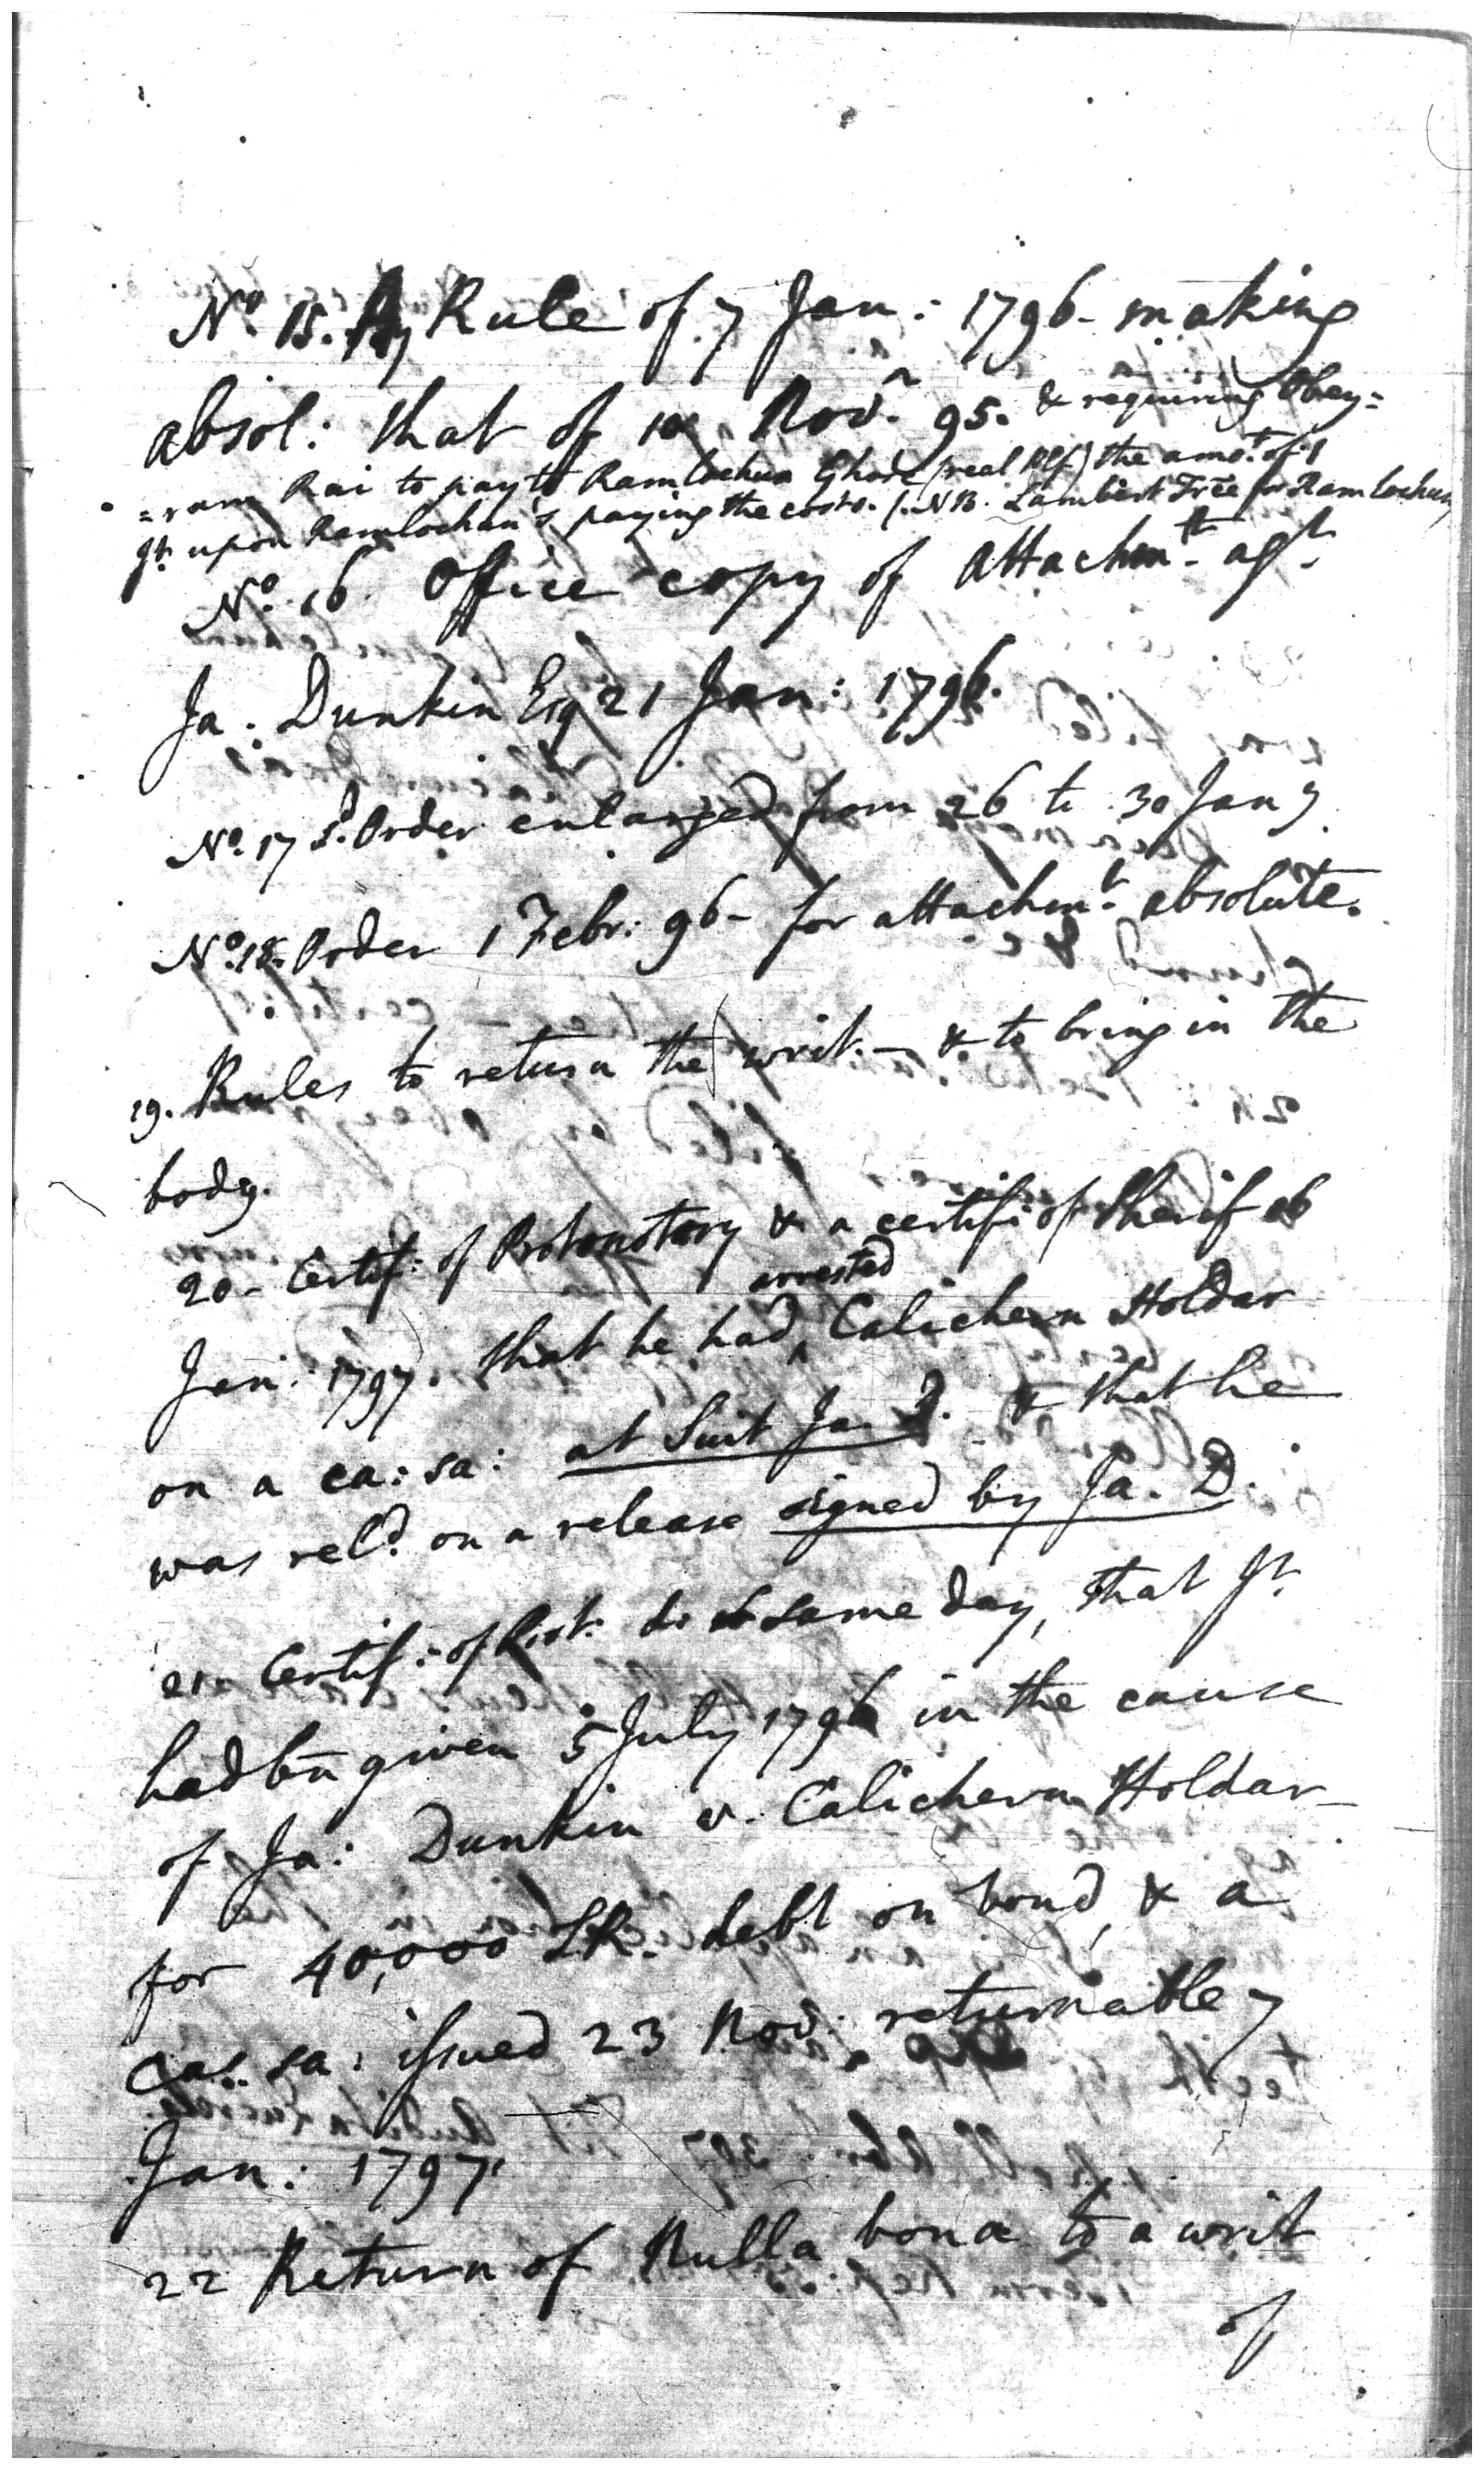 No. 15. Rule of 7 Jan: 1796- making
absol: that of 10 Novr. 95. & requiring Obey=
=ram Rai to pay to Ramlochun Ghose (real Plf.) the amot. of
Jt. upon Ramlochun's paying the costs. (.NB. Lambert Free for Ramlochun)
No. 16 Office copy of Attachmt. agt.
Ja. Dunkin Esq 21 Jan: 1796.
No. 17 sd. Order enlarged from 26 to 30 Jany.
No. 18. Order 1 Febr: 96- for attachmt. absolute.
19. Rules to return the writ.- & to bring in the
body.
20- Certif: of Protonotory & a certifi: of Sherif 26
Jan: 1797. that he had arrested Calichern Holdar
on a ca: sa: at Suit Ja. D. & that he
was reld. on a release signed by Ja. D.
21- Certif: of Prot: do same day, that Jt.
had bn given 5 July 1796 in the cause
of Ja: Dunkin v. Calichern Holdar
for 40,000 SR. debt on bond, & a
Ca: sa: issued 23 Nov: returnable 7
Jan: 1797.
22 Return of Nulla bona to a writ
of